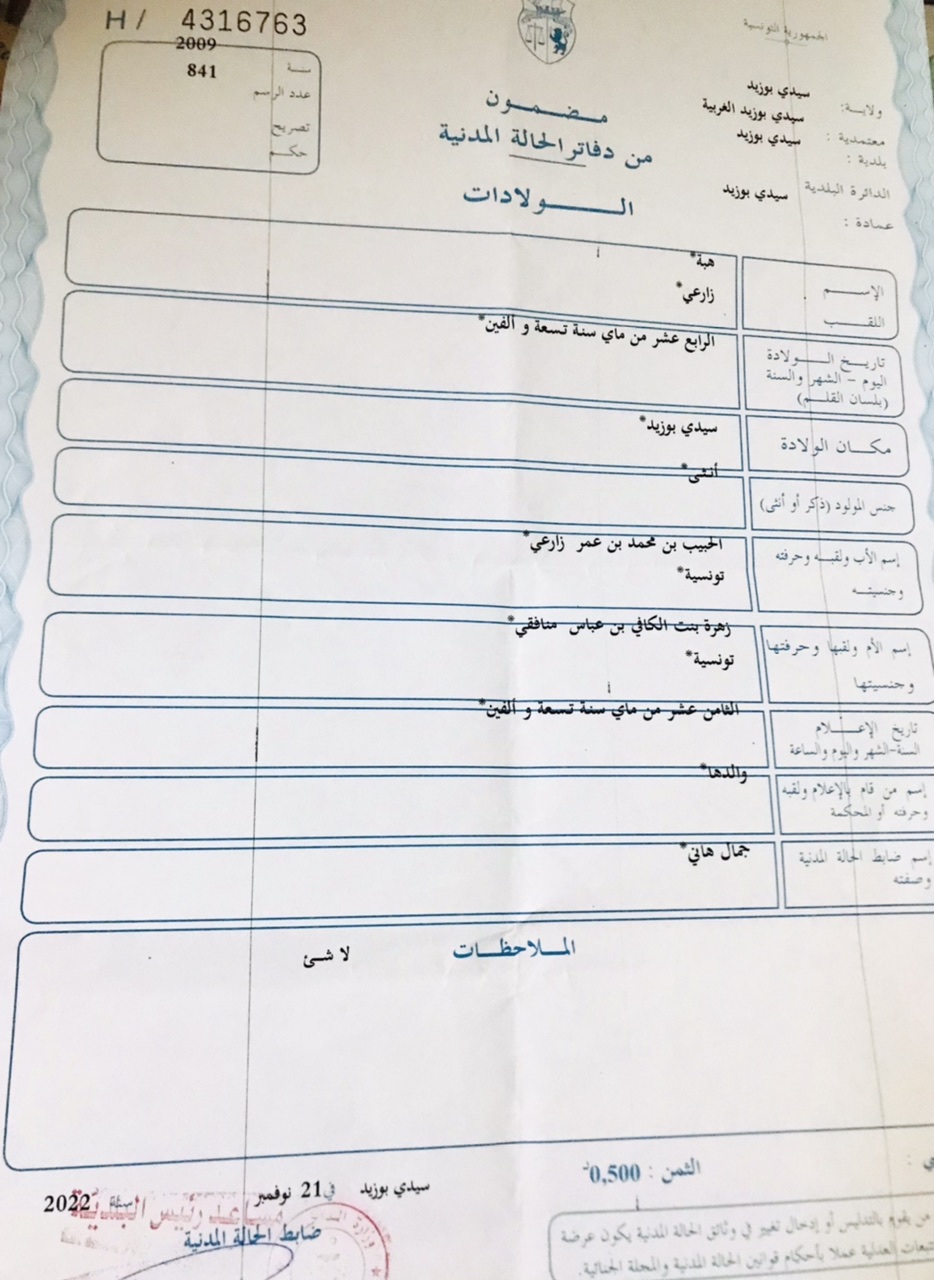 H/ 4316763
الجمهورية التونسية
2009
سنة
841
عدد الرسم
تصريح
حكم
ولاية: سيدي بوزيد
معتمدية : سيدي بوزيد الغربية
بلدية : سيدي بوزيد
الدائرة البلدية سيدي بوزيد
عمادة :
مضمون
من دفاتر الحالة المدنية
الولادات
الإسم هبة*
اللقب زارعي*
تاريخ الولادة الرابع عشر من ماي سنة تسعة و ألفين*
اليوم - الشهر والسنة
(بلسان القلم)
مكان الولادة سيدي بوزيد*
جنس المولود (ذكر أو أنثى) أنثى*
إسم الأب ولقبه وحرفته الحبيب بن محمد بن عمر زارعي*
وجنسيته تونسية*
إسم الأم ولقبها وحرفتها زهرة بنت الكافي بن عباس منافقي*
وجنسيتها تونسية*
تاريخ الإعلام الثامن عشر من ماي سنة تسعة و ألفين*
السنة-الشهر واليوم والساعة
إسم من قام بالإعلام ولقبه والدها*
وحرفته أو المحكمة
إسم ضابط الحالة المدنية جمال هاني*
وصفته
الملاحظات
لا شئ
الثمن : 0,500
سيدي بوزيد في 21 نوفمبر سنة 2022
مساعد رئيس البلدية
ضابط الحالة المدنية
من يقوم بالتدليس أو إدخال تغيير في وثائق الحالة المدنية يكون عرضة
العدلية عملا بأحكام قوانين الحالة المدنية والمجلة الجنائية.